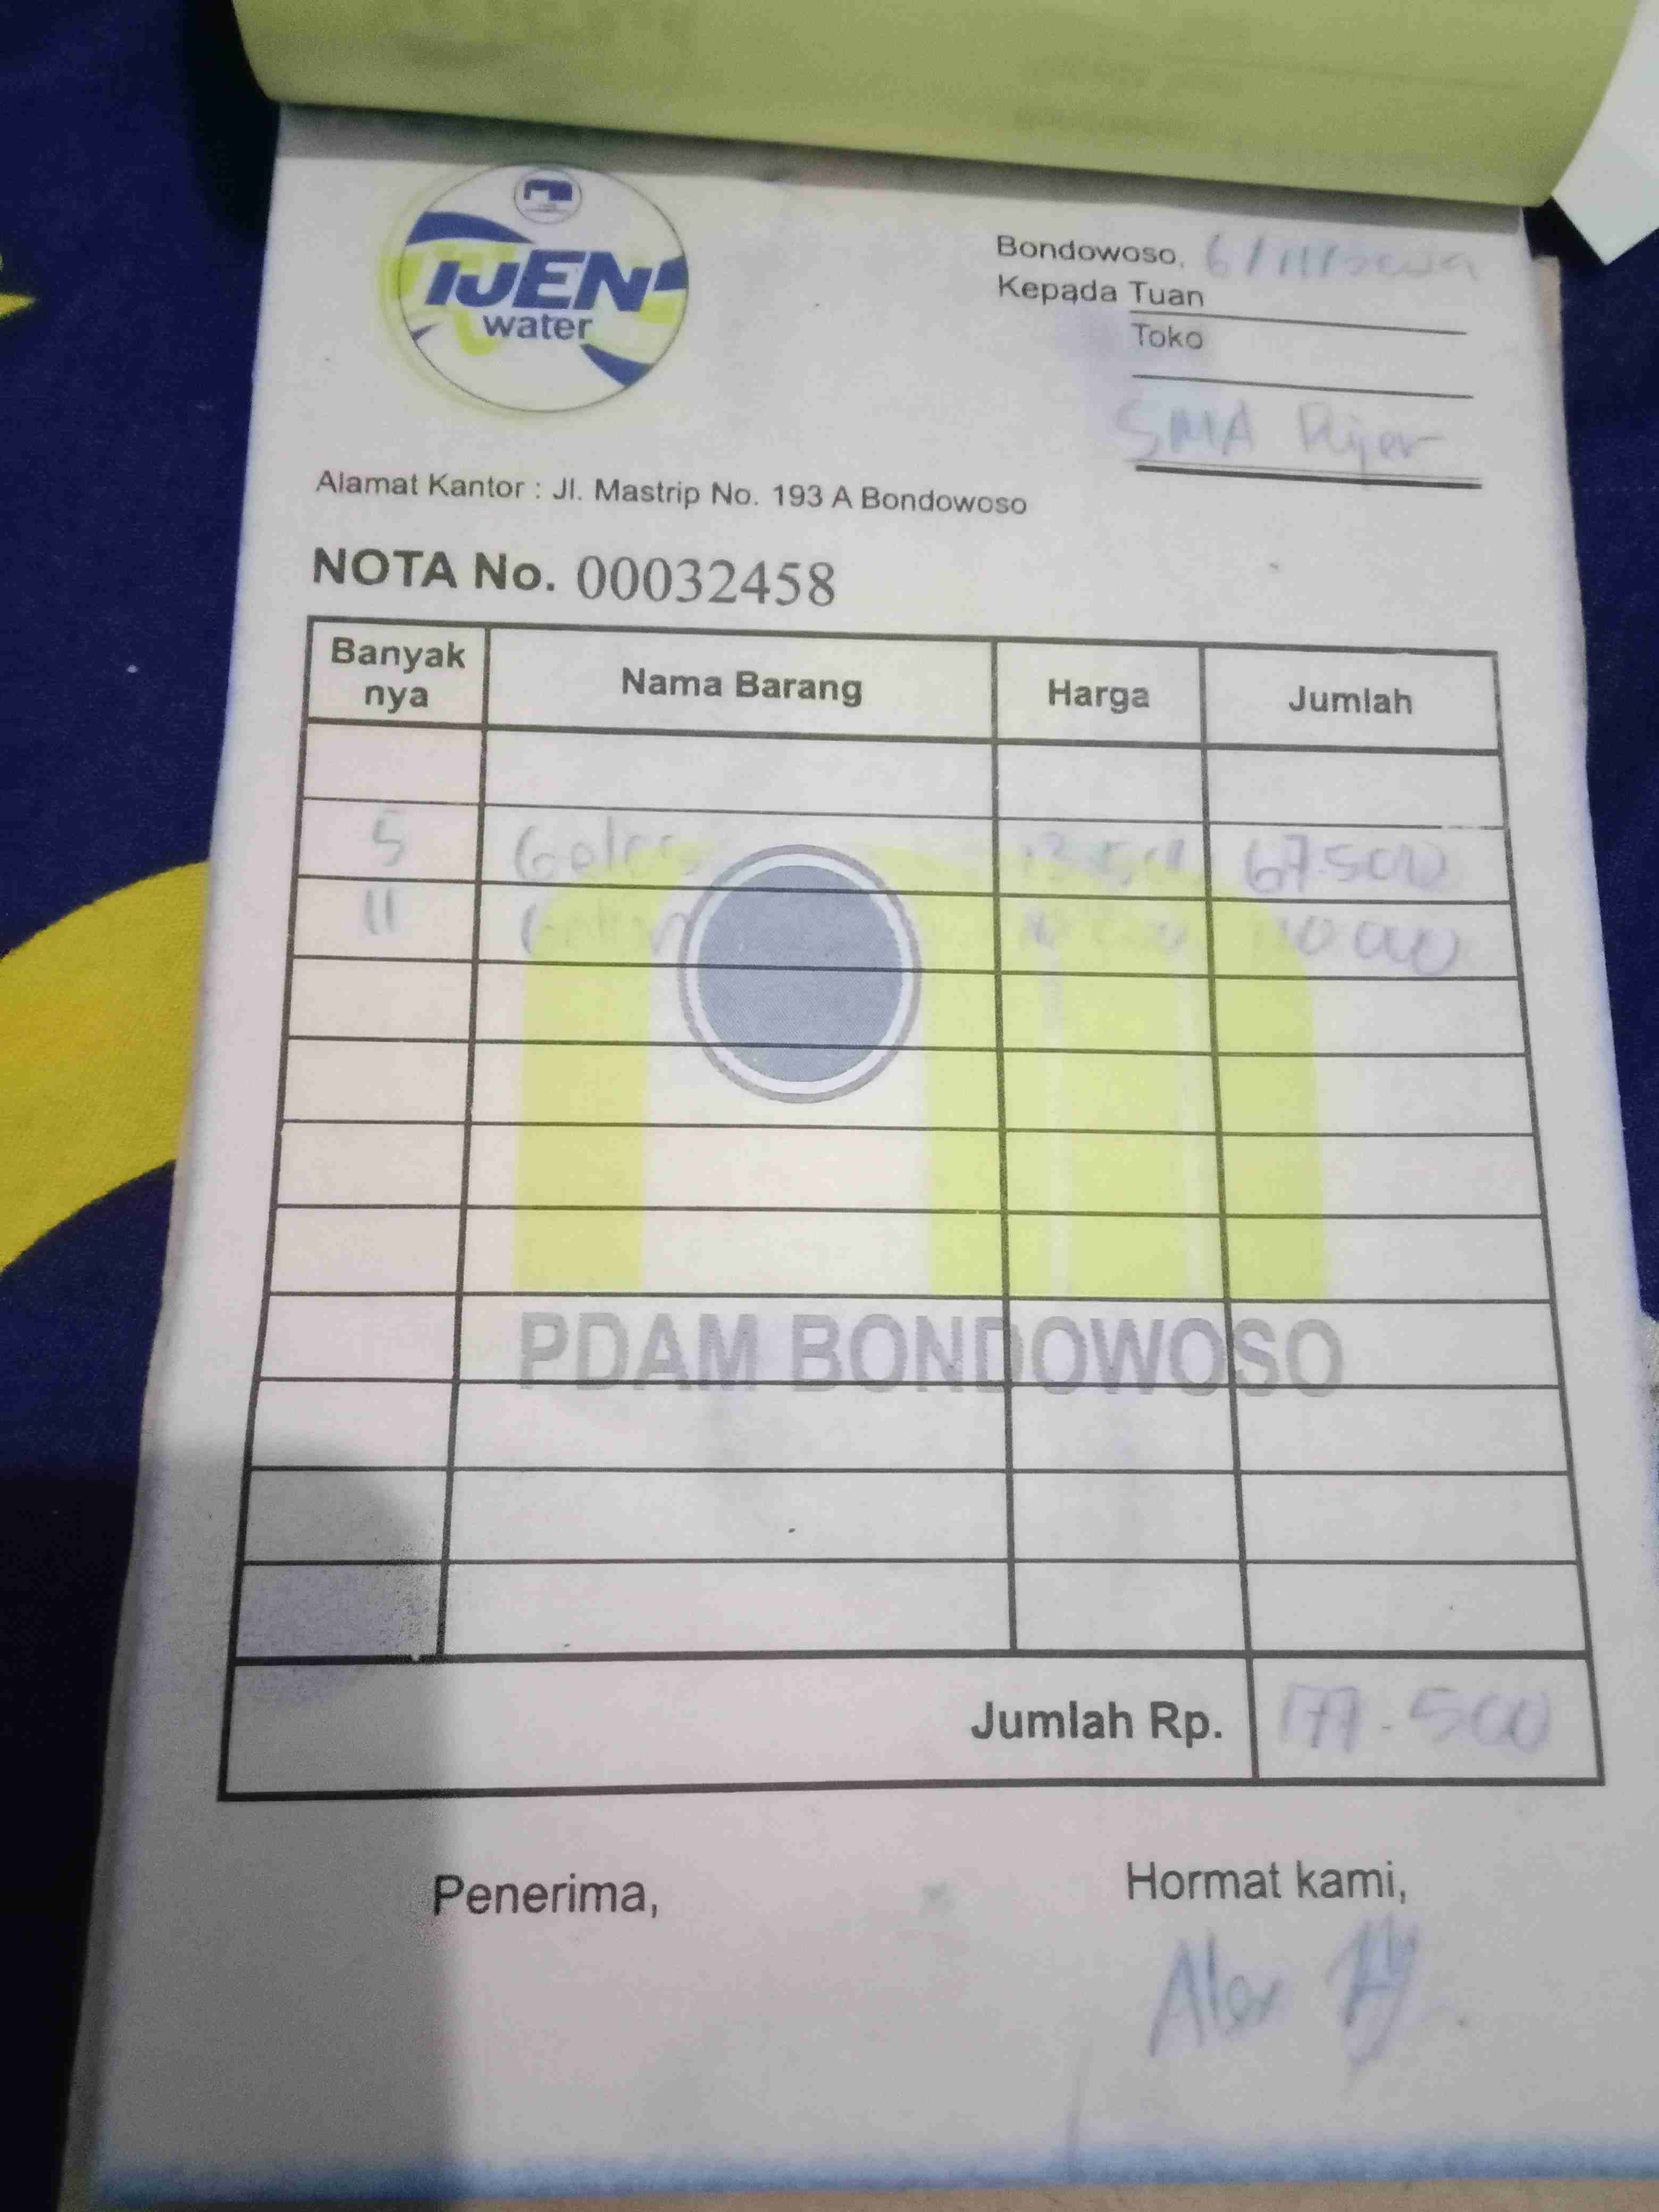 IJEN
water
Bondowoso, 6/11/
Kepada Tuan
Toko
SMA
Alamat Kantor : Jl. Mastrip No. 193 A Bondowoso
NOTA No. 00032458
Banyak nya Nama Barang Harga Jumlah
5 Gelas 13.500 67.500
11 110.000
PDAM BONDOWOSO
Jumlah Rp. 177.500
Penerima, Hormat kami,
Alex